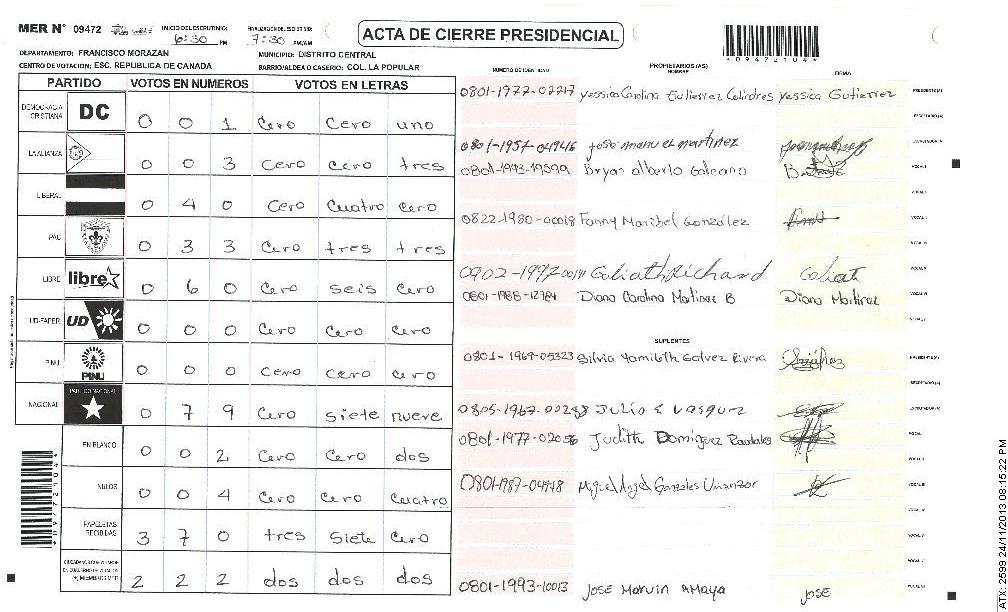 MER Nº 09472 INICIO DEL ESCRUTINIO: 6:30 PM FINALIZACION DEL ESCRUTINIO: 7:30 PM/AM
ACTA DE CIERRE PRESIDENCIAL
*09472104*
DEPARTAMENTO: FRANCISCO MORAZAN MUNICIPIO: DISTRITO CENTRAL
CENTRO DE VOTACION: ESC. REPUBLICA DE CANADA BARRIO/ALDEA O CASERIO: COL. LA POPULAR
PARTIDO VOTOS EN NUMEROS VOTOS EN LETRAS
DEMOCRACIA CRISTIANA DC 0 0 1 Cero Cero uno
LA ALIANZA 0 0 3 Cero cero tres
LIBERAL 0 4 0 Cero Cuatro Cero
PAC 0 3 3 Cero tres tres
LIBRE libre 0 6 0 Cero seis Cero
UD-FAPER UD 0 0 0 Cero Cero Cero
PINU PINU 0 0 0 Cero Cero Cero
NACIONAL PARTIDO NACIONAL 0 7 9 Cero siete nueve
EN BLANCO 0 0 2 Cero Cero dos
NULOS 0 0 4 Cero Cero cuatro
PAPELETAS RECIBIDAS 3 7 0 tres siete cero
2 2 2 dos dos dos
*09472104*
NUMERO DE IDENTIDAD PROPIETARIOS (AS) NOMBRE FIRMA
0801-1977-02217 Yessica Carolina Gutierrez Yessica Gutierrez PRESIDENTE(A)
SECRETARIO(A)
0801-1957-04946 jose manuel martinez ESCRUTADOR(A)
0801-1993-19599 Bryan alberto Galeano VOCAL I
0822-1980-00018 Fanny Maribel González
0902-1997-00111 Goliath Richard Goliat
0801-1988-12784 Diana Carolina Martinez B Diana Martinez
SUPLENTES
0801-1969-05323 Silvia Yamileth Galvez Rivera PRESIDENTE(A)
SECRETARIO(A)
0805-1967-00288 Julio E Vasquez ESCRUTADOR(A)
0801-1977-02056 Judith Dominguez
0801-1987-04948 Miguel Angel Gonzales
0801-1993-10013 JOSE Marvin AMaya JOSE
ATX: 2599 24/11/2013 08:15:22 PM